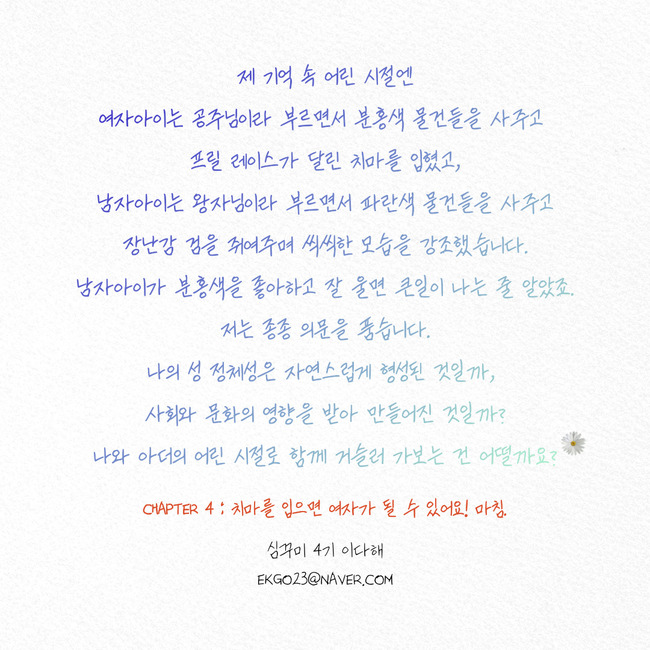 제 기억 속 어린 시절엔
여자아이는 공주님이라 부르면서 분홍색 물건들을 사주고
프릴 레이스가 달린 치마를 입혔고,
남자아이는 왕자님이라 부르면서 파란색 물건들을 사주고
장난감 검을 쥐여주며 씩씩한 모습을 강조했습니다.
남자아이가 분홍색을 좋아하고 잘 울면 큰일이 나는 줄 알았죠.
저는 종종 의문을 품습니다.
나의 성 정체성은 자연스럽게 형성된 것일까,
사회와 문화의 영향을 받아 만들어진 것일까?
나와 아더의 어린 시절로 함께 거슬러 가보는 건 어떨까요?
CHAPTER 4 : 치마를 입으면 여자가 될 수 있어요! 마침.
심꾸미 4기 이다해
EKGO23@NAVER.COM